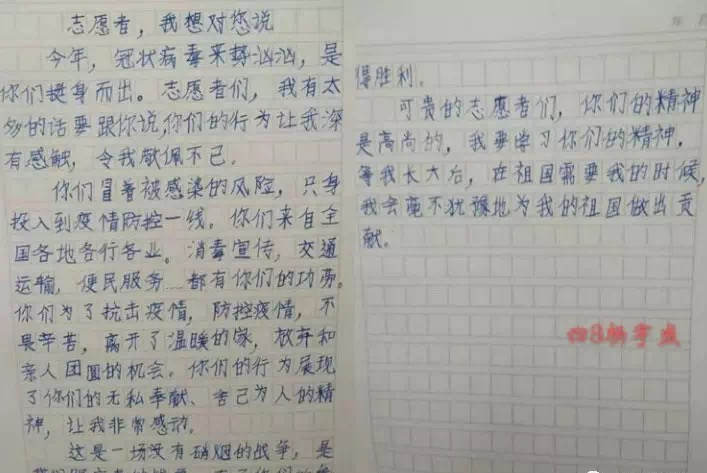 志愿者，我想对您说
今年，冠状病毒来势汹汹，是
你们挺身而出。志愿者们，我有太
多的话要跟你说，你们的行为让我深
有感触，令我敬佩不已。
你们冒着被感染的风险，只身
投入到疫情防控一线。你们来自全
国各地各行各业。消毒宣传，交通
运输，便民服务……都有你们的功劳。
你们为了抗击疫情，防控疫情，不
畏辛苦，离开了温暖的家，放弃和
亲人团圆的机会。你们的行为展现
了你们的无私奉献、舍己为人的精
神，让我非常感动。
这是一场没有硝烟的战争，是
得胜利。
可贵的志愿者们，你们的精神
是高尚的，我要学习你们的精神，
等我长大后，在祖国需要我的时候，
我会毫不犹豫地为我的祖国做出贡
献。
四8杨宇成